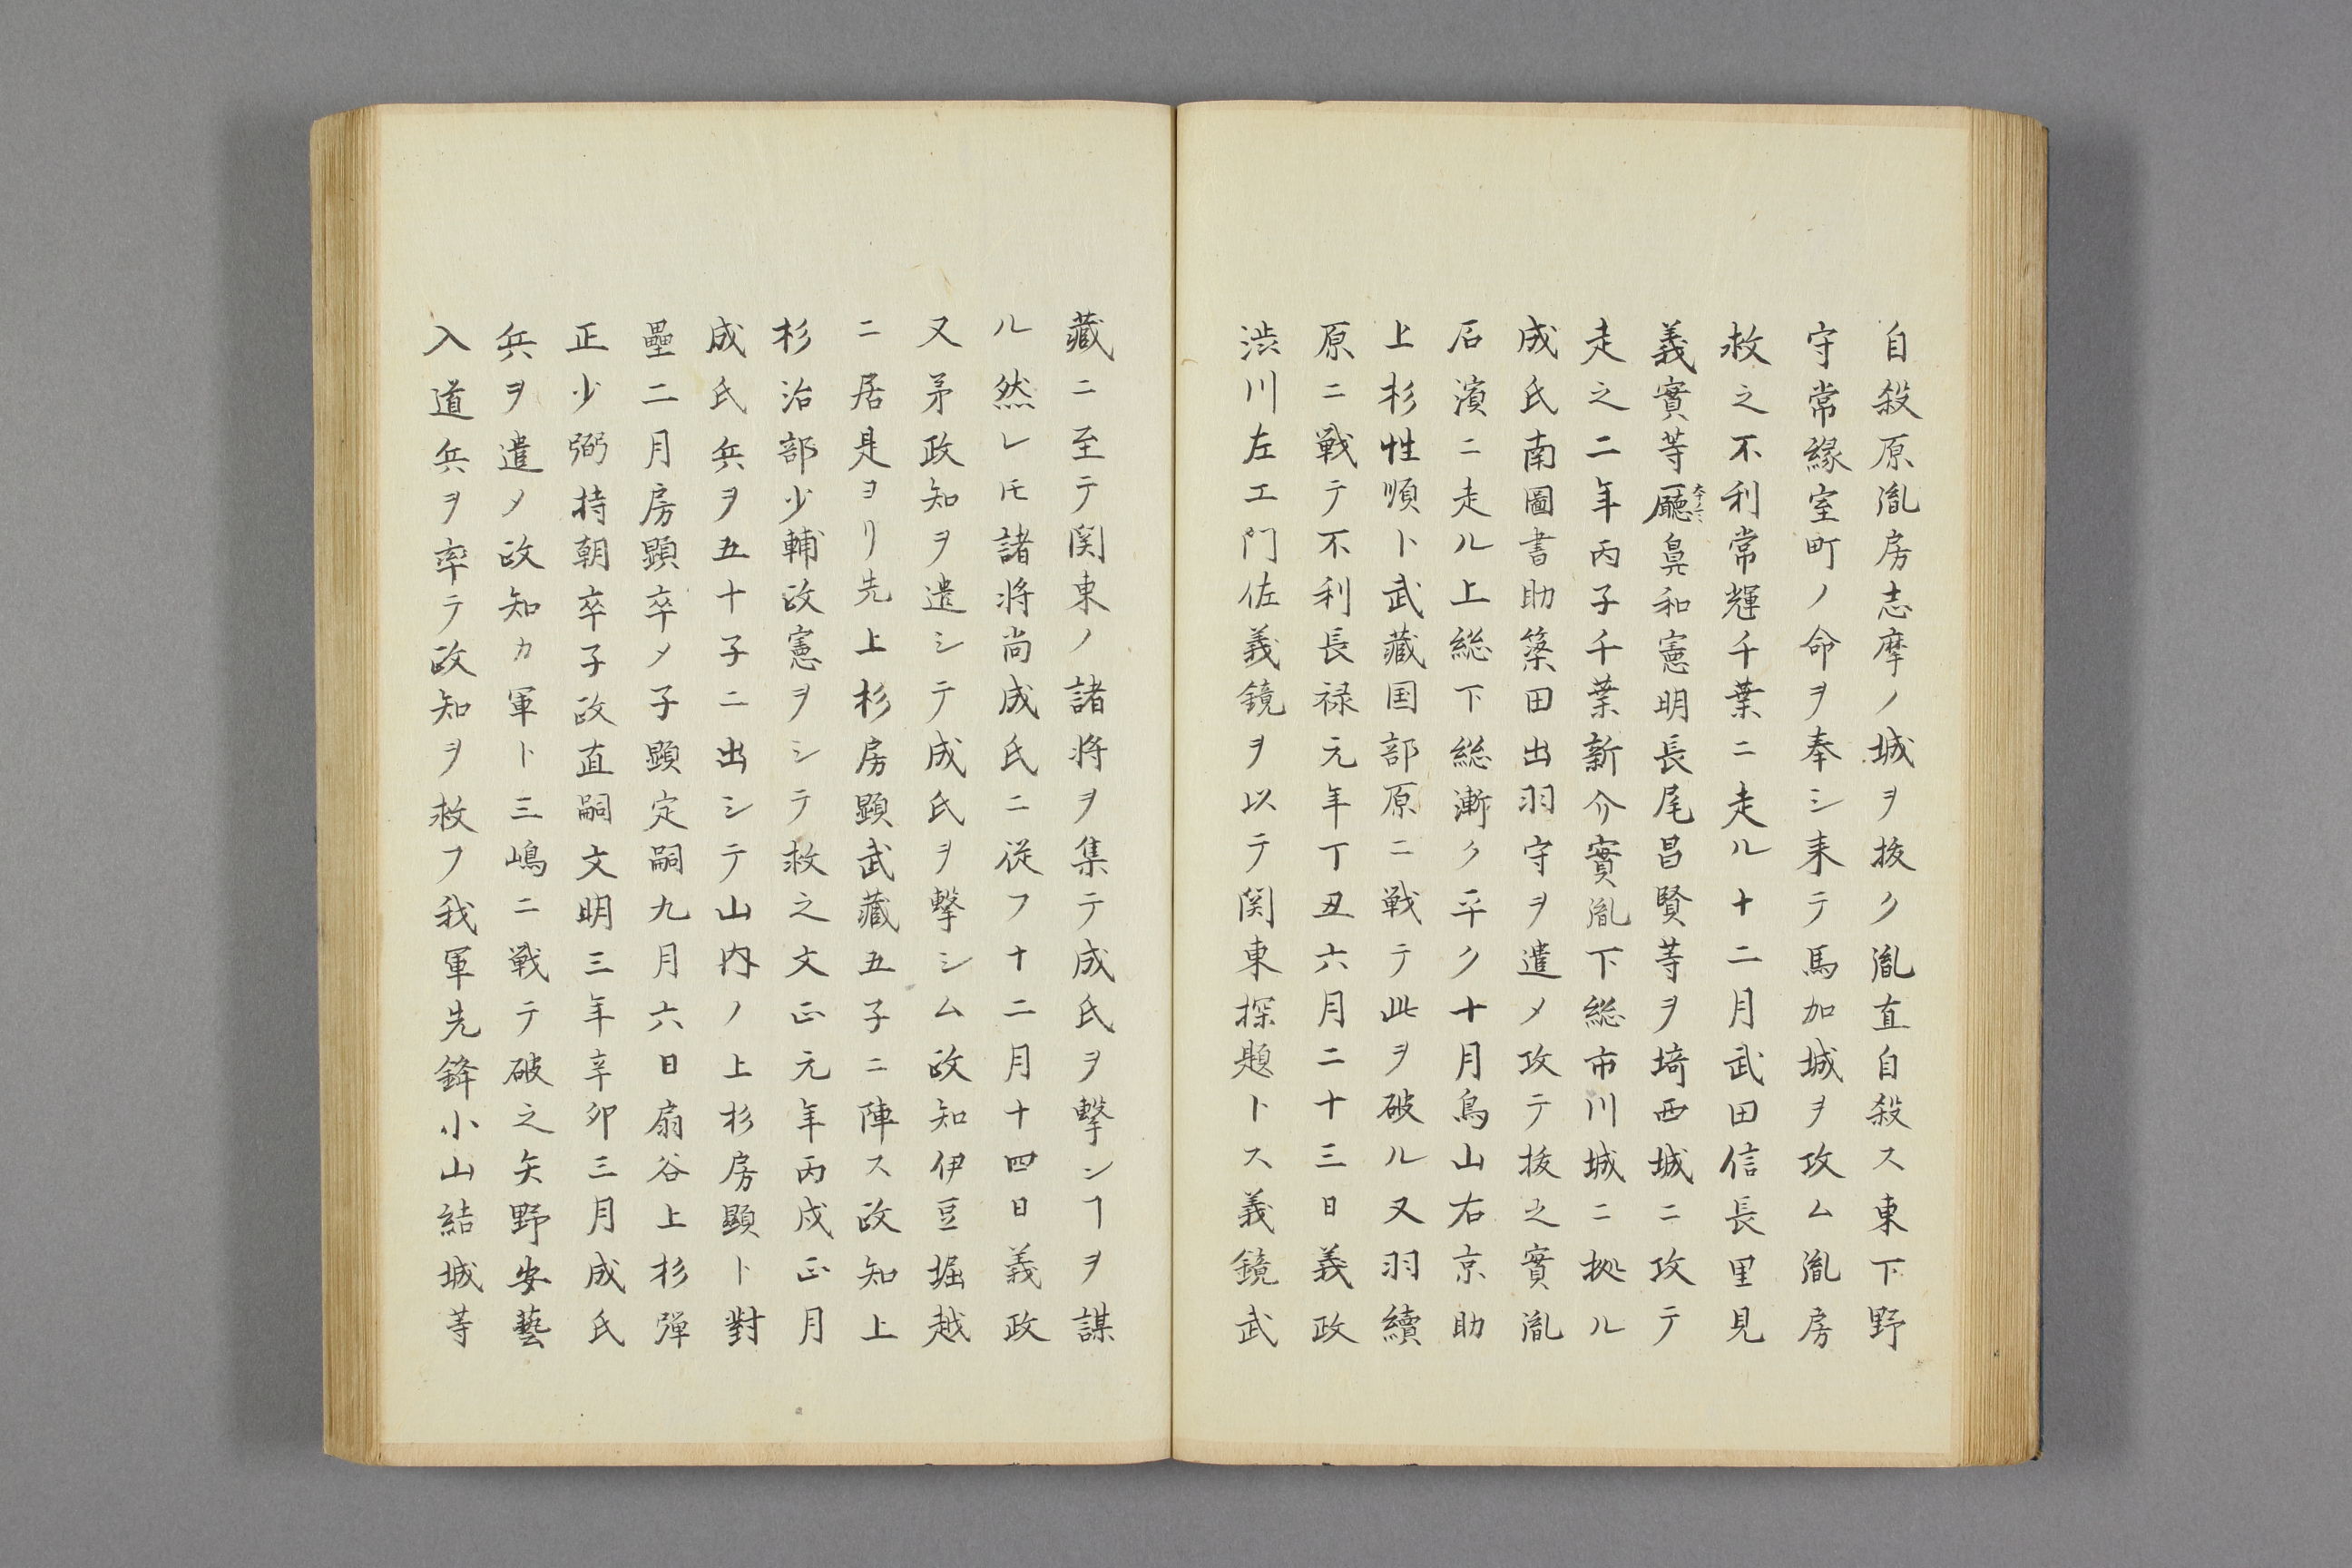 自殺原胤房志摩ノ城ヲ抜ク胤直自殺ス東下野
守常縁室町ノ命ヲ奉シ来テ馬加城ヲ攻ム胤房
救之不利常輝千葉ニ走ル十二月武田信長里見
義實等廳鼻和憲明長尾昌賢等ヲ埼西城ニ攻テ
走之二年丙子千葉新介實胤下総市川城ニ拠ル
成氏南圖書助築田出羽守ヲ遣メ攻テ抜之實胤
石濱ニ走ル上総下総漸ク平ク十月鳥山右京助
上杉性順ト武藏国部原ニ戦テ此ヲ破ル又羽續
原ニ戦テ不利長禄元年丁丑六月二十三日義政
渋川左エ門佐義鏡ヲ以テ関東探題トス義鏡武
藏ニ至テ関東ノ諸将ヲ集テ成氏ヲ撃ンヿヲ謀
ル然レ𪜈諸将尚成氏ニ従フ十二月十四日義政
又弟政知ヲ遣シテ成氏ヲ撃シム政知伊豆堀越
ニ居是ヨリ先上杉房顕武藏五子ニ陣ス政知上
杉治部少輔政憲ヲシテ救之文正元年丙戌正月
成氏兵ヲ五十子ニ出シテ山内ノ上杉房顕ト對
壘二月房顕卒メ子顕定嗣九月六日扇谷上杉弾
正少弼持朝卒子政直嗣文明三年辛卯三月成氏
兵ヲ遣メ政知カ軍ト三嶋ニ戦テ破之矢野安藝
入道兵ヲ率テ政知ヲ救フ我軍先鋒小山結城等